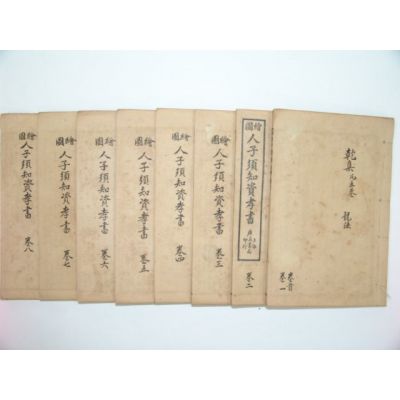 乾真九五卷 龍法
卷首
卷一
繪圖
人子須知資孝書
卷二
繪圖
人子須知資孝書
卷三
繪圖
人子須知資孝書
卷四
繪圖
人子須知資孝書
卷五
繪圖
人子須知資孝書
卷六
繪圖
人子須知資孝書
卷七
繪圖
人子須知資孝書
卷八